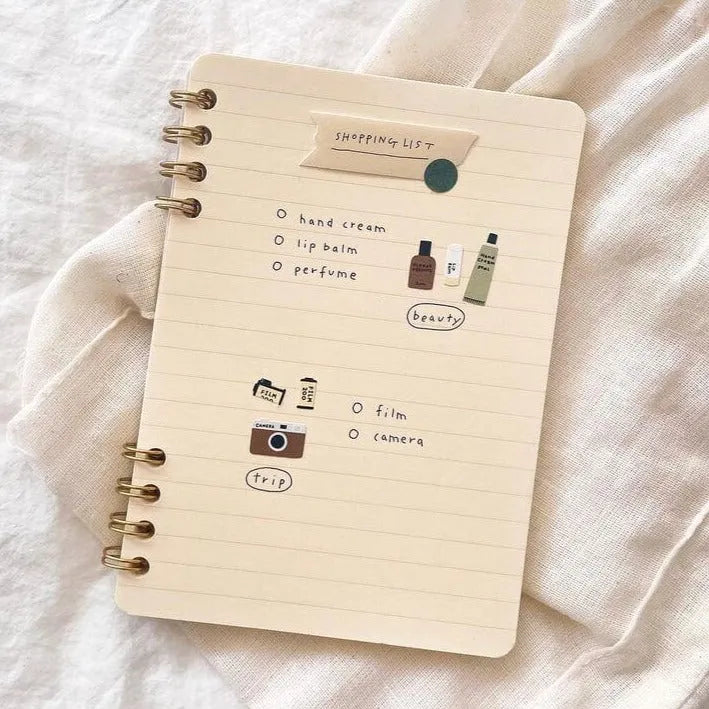 SHOPPING LIST
hand cream
lip balm
perfume
Hand
Cream
beauty
FILM
200
FILM
200
CAMERA
film
camera
trip